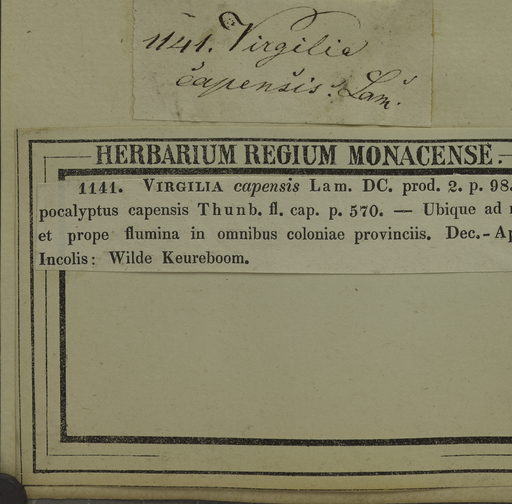 1141. Virgilia
capensis. Lam.
HERBARIUM REGIUM MONACENSE.
1141. VIRGILIA capensis Lam. DC. prod. 2. p. 98.
pocalyptus capensis Thunb. fl. cap. p. 570. — Ubique ad
et prope flumina in omnibus coloniae provinciis. Dec.-Ap
Incolis: Wilde Keureboom.